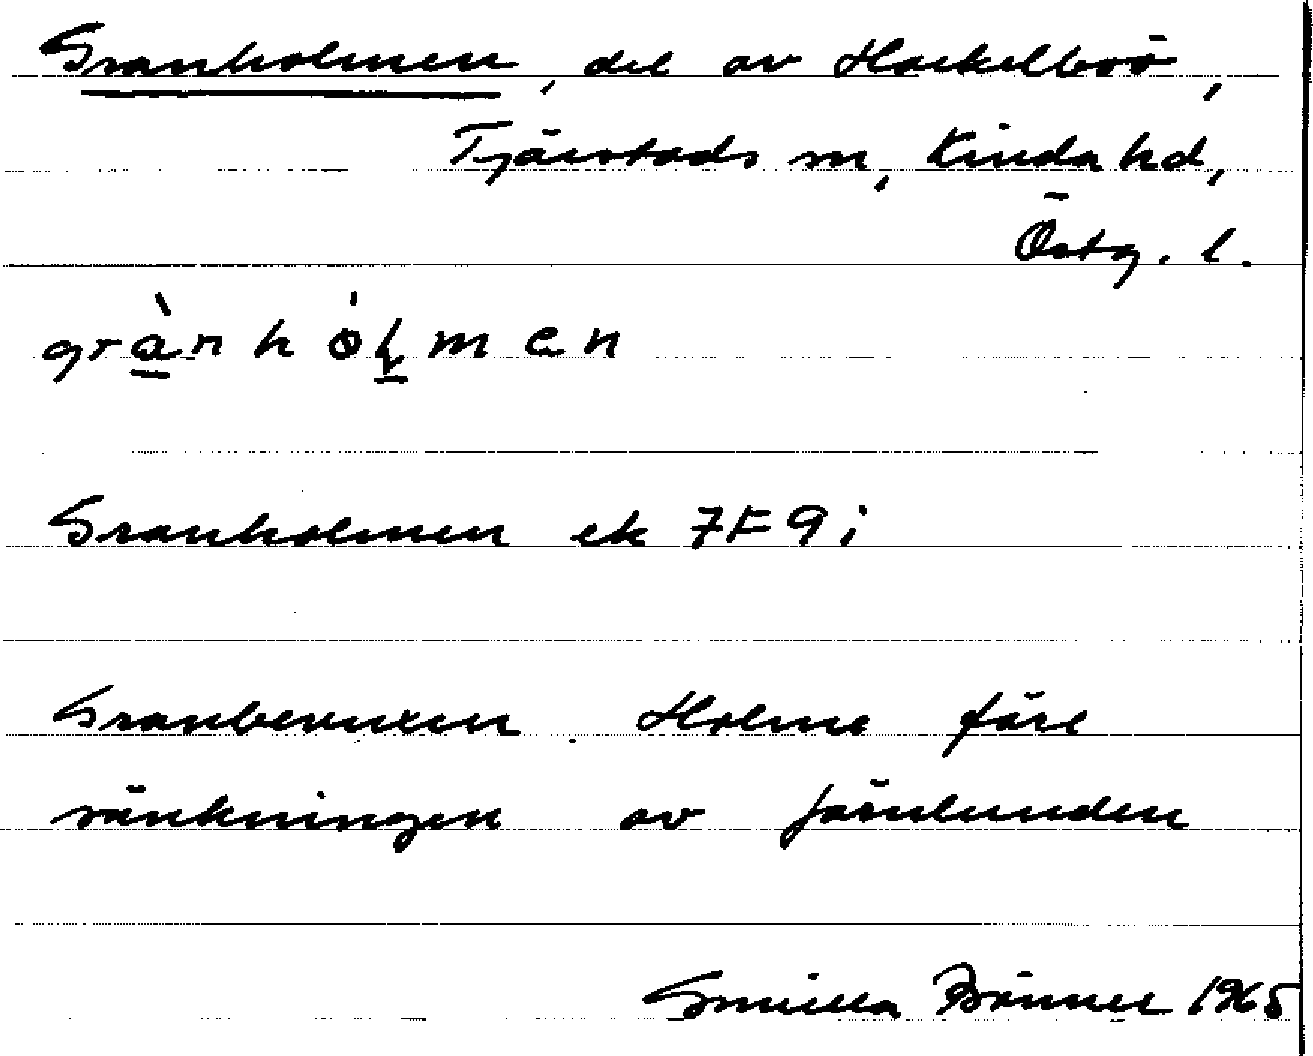 Granholmen, del av Hackelboö,
Tjärstads sn, Kinda hd,
Östg. l.
grànhólmen
Granholmen ek 7F9i
Granbevuxen Holme före
sänkningen av Järnlunden
Gunilla 1965